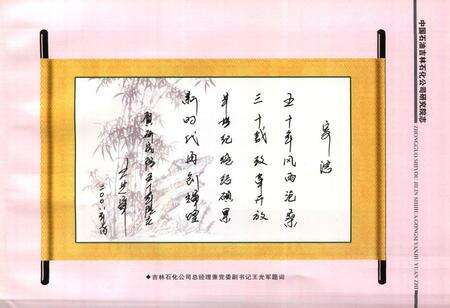 中国石油吉林石化公司研究院志
ZHONGGUO SHIYOU JILIN SHIHUA GONGSI YANJIU YUAN ZHI
寄语
五十年风雨沧桑
三十载改革开放
半世纪结硕果
新时代再创辉煌
◆吉林石化公司总经理兼党委副书记王光军题词